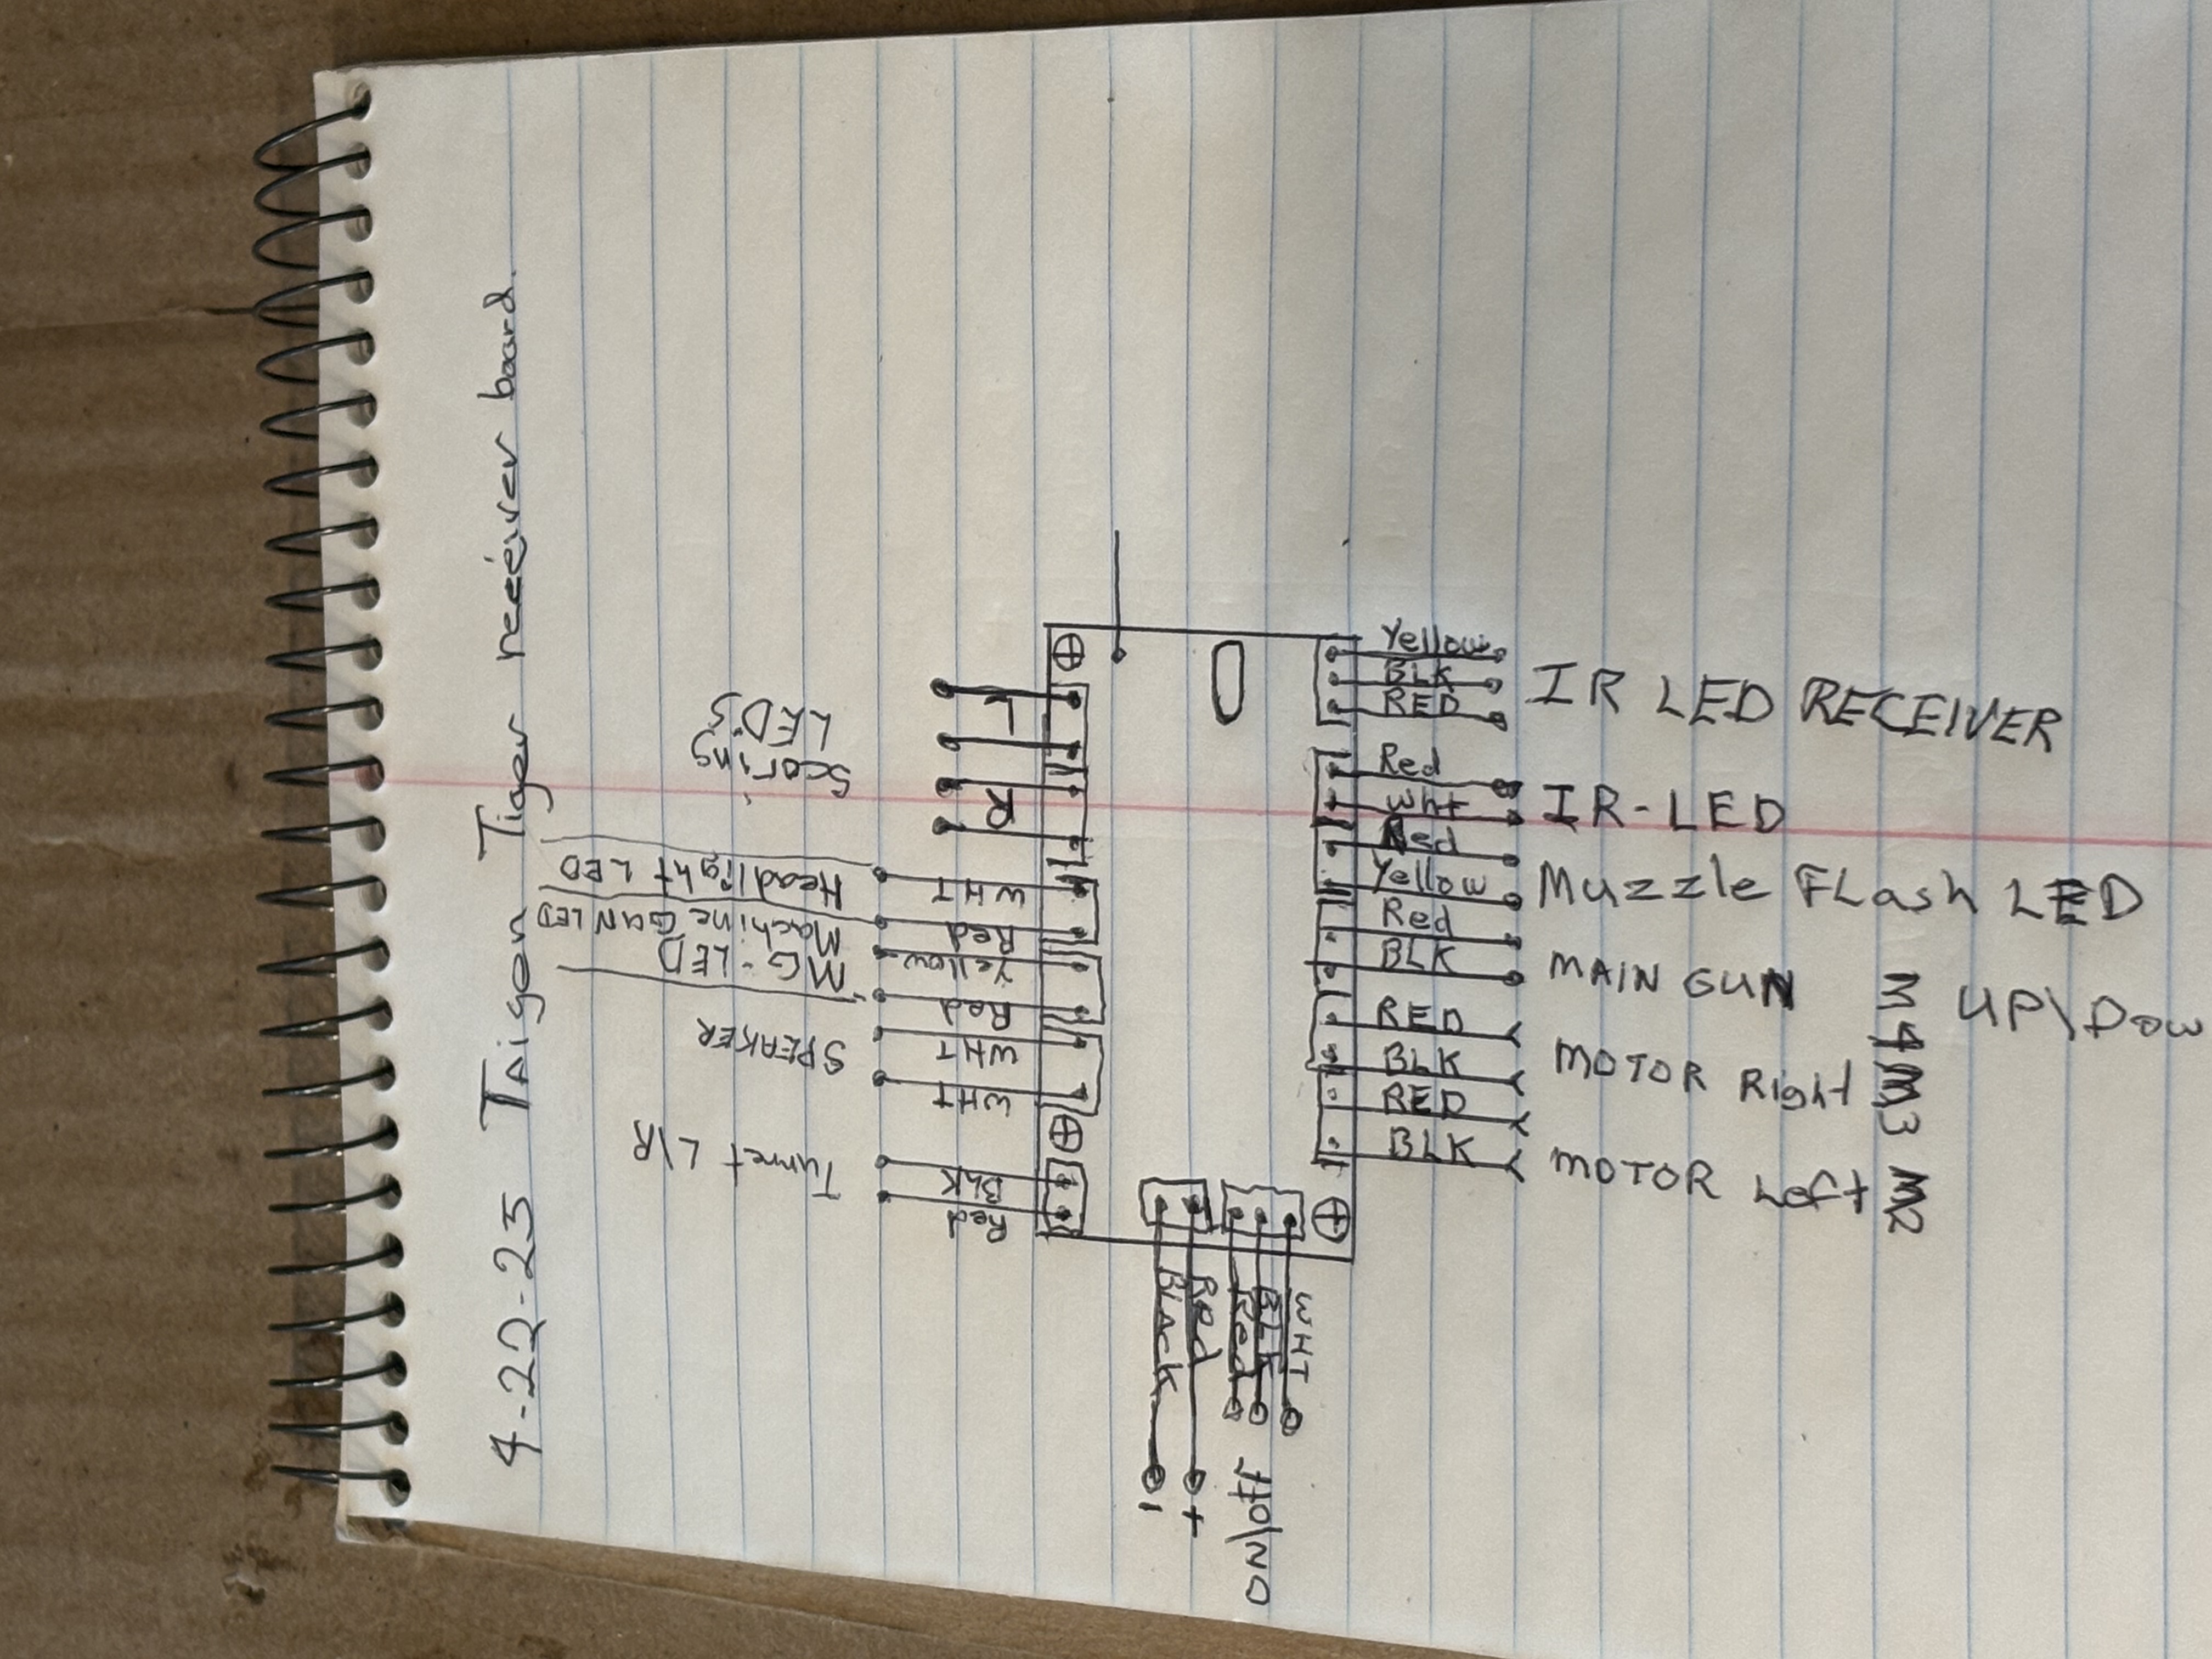 4-22-25 Taigen Tiger receiver board.
Yellow
BLK
RED
IR LED RECEIVER
Red
Wht
IR-LED
Red
Yellow
Muzzle FLash LED
Red
BLK
MAIN GUN M4 UP\Dow
RED
BLK
MOTOR Right M3
RED
BLK
MOTOR Left M2
WHT
BLK
Red
ON\off
Red
+
BLACK
-
Red
BLK
Turret L/R
WHT
WHT
SPEAKER
Red
Yellow
MG-LED
Machine GUN LED
Red
WHT
Headlight LED
R
L
Scoring
LED'S